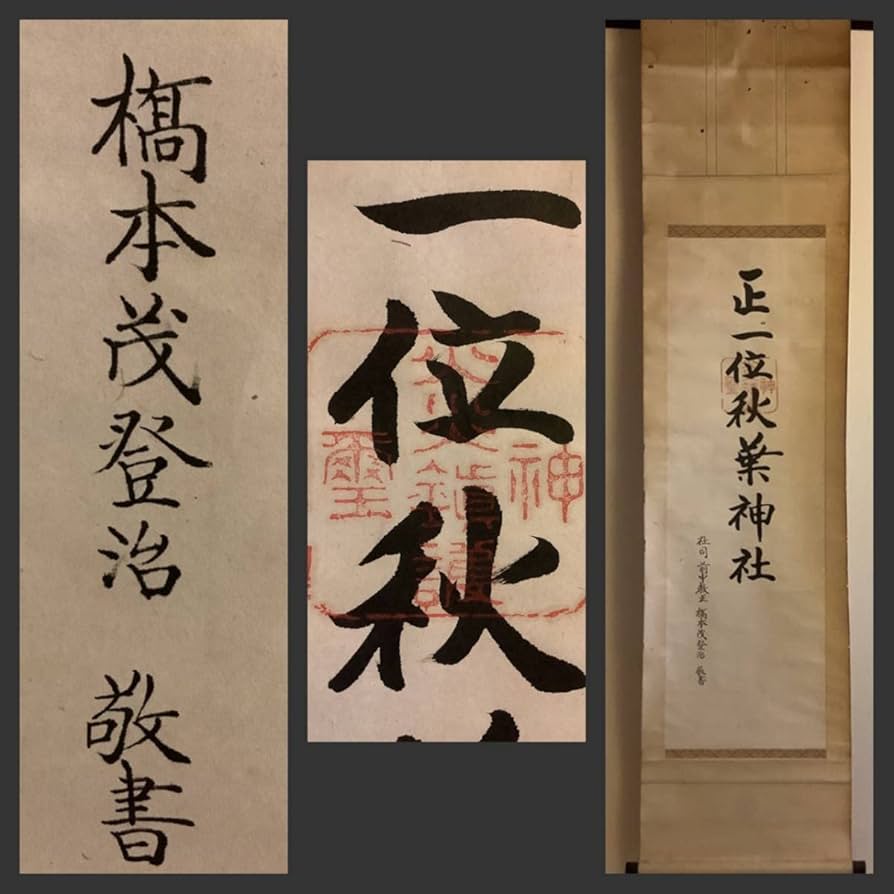 橋本茂登治 敬書
一位秋
神
鎮護
璽
正一位秋葉神社
社司 前中教正 橋本茂登治 敬書